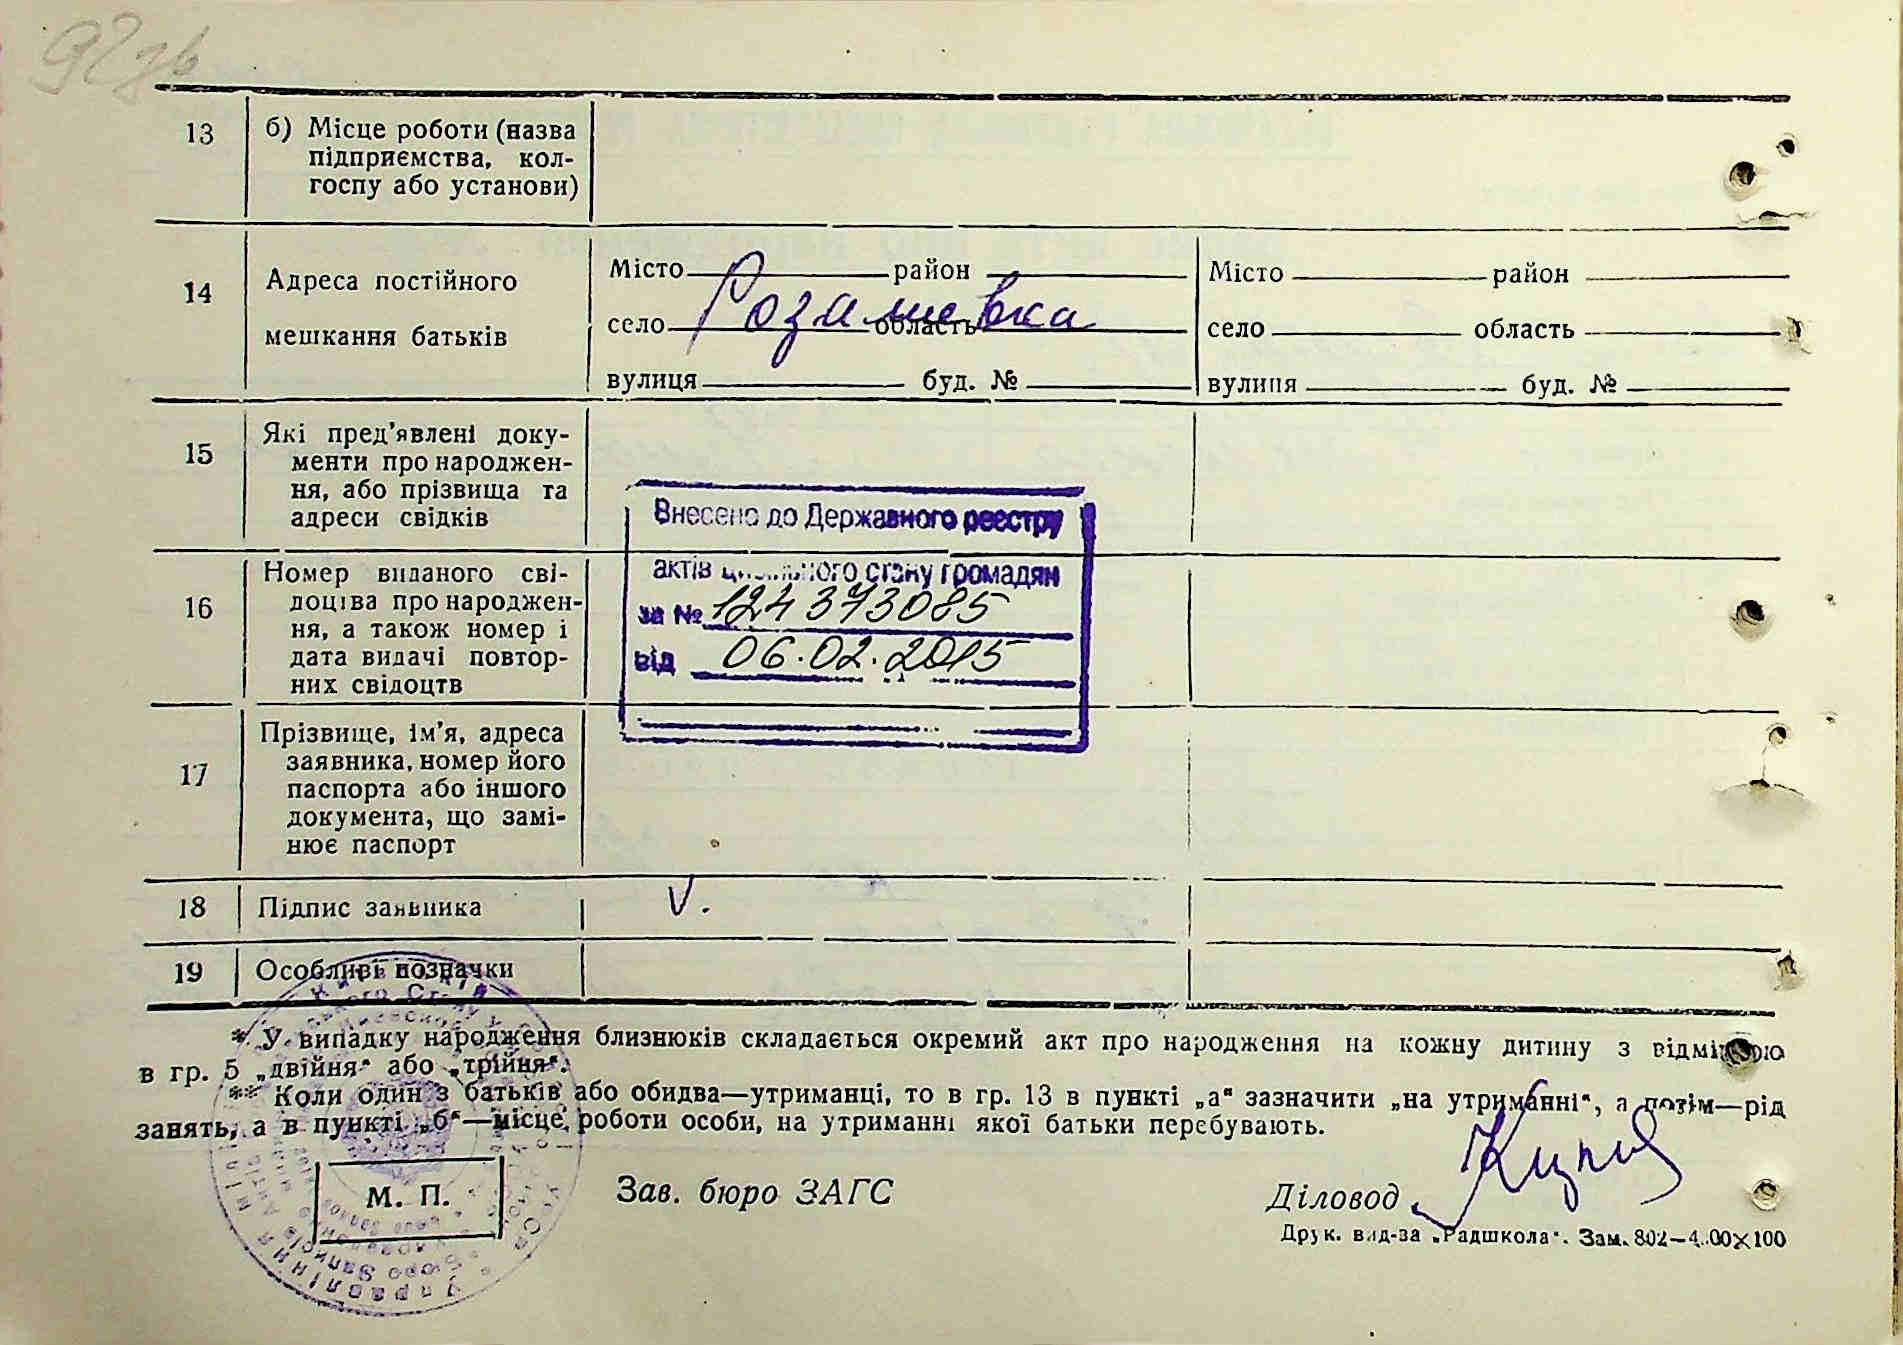 92зв
13
б) Місце роботи (назва
підприємства, кол-
госпу або установи)
14
Адреса постійного
мешкання батьків
Місто район
село Розалиевка область
вулиця буд. №
Місто район
село область
вулиця буд. №
15
Які пред'явлені доку-
менти про народжен-
ня, або прізвища та
адреси свідків
Внесено до Державного реєстру
актів цивільного стану громадян
за № 124373085
від 06.02.2015
16
Номер виданого сві-
доцтва про народжен-
ня, а також номер і
дата видачі повтор-
них свідоцтв
17
Прізвище, ім'я, адреса
заявника, номер його
паспорта або іншого
документа, що замі-
нює паспорт
18
Підпис заявника
V.
19
Особливі позначки
* У випадку народження близнюків складається окремий акт про народження на кожну дитину з відміткою
в гр. 5 „двійня“ або „трійня“.
** Коли один з батьків або обидва—утриманці, то в гр. 13 в пункті „а“ зазначити „на утриманні“, а потім—рід
занять, а в пункті „б“—місце роботи особи, на утриманні якої батьки перебувають.
М. П.
Зав. бюро ЗАГС
Діловод
Друк. вид-ва „Радшкола“. Зам. 802—4.00×100